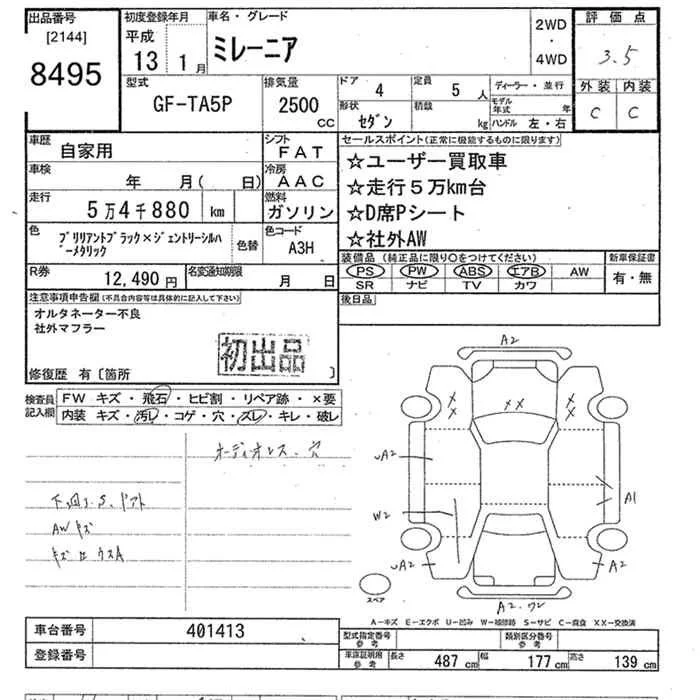 出品番号
[2144]
8495
初度登録年月
平成
13 1月
車名・グレード
ミレーニア
2WD
・
4WD
評価点
3.5
外装 内装
C C
型式
GF-TA5P
排気量
2500
CC
ドア 4
定員 5 人
ディーラー・並行
形状
セダン
積載
kg
モデル年式 年
ハンドル 左・右
車歴
自家用
シフト
FAT
車検
年 月( 日)
冷房
AAC
走行
5万4千880 km
燃料
ガソリン
色
ブリリアントブラック×ジェントリーシルバーメタリック
色替
色コード
A3H
R券
12,490円
名変通知期限
月 日
セールスポイント(正常に機能するものに限ります)
☆ユーザー買取車
☆走行5万km台
☆D席Pシート
☆社外AW
装備品(純正品に限り○をつけてください)
新車保証書
PS PW ABS エアB AW
SR ナビ TV カワ
有・無
後日品
注意事項申告欄(不具合内容等は具体的に記入して下さい)
オルタネーター不良
社外マフラー
初出品
修復歴 有〔箇所 〕
検査員記入欄
FW キズ・飛石・ヒビ割・リペア跡・×要
内装 キズ・汚レ・コゲ・穴・スレ・キレ・破レ
オーディオレス、穴
AWキズ
A2
XX
XX
XX
uA2
W2
A1
uA2
uA2
A2.W2
スペア
A-キズ E-エクボ U-凹み W-補修跡 S-サビ C-腐食 XX-交換済
車台番号
401413
登録番号
型式指定番号
参考
類別区分番号
参考
車庫証明用
参考
長さ 487 cm
幅 177 cm
高さ 139 cm